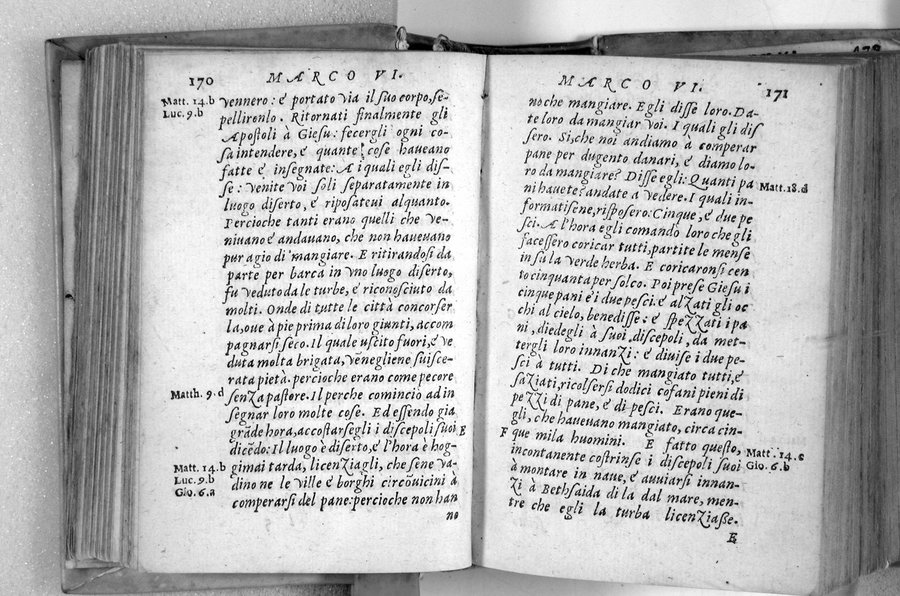 170 MARCO VI.
Matt. 14.b
Luc. 9.b
vennero: é portato via il suo corpo, se-
pellironlo. Ritornati finalmente gli
Apostoli à Giesu: fecergli ogni co-
sa intendere, é quante cose haueano
fatte é insegnate: A i quali egli dis-
se: venite voi soli separatamente in
luogo diserto, é riposateui alquanto.
Percioche tanti erano quelli che ve-
niuano é andauano, che non haueuano
pur agio di mangiare. E ritirandosi da
parte per barca in vno luogo diserto,
fu veduto da le turbe, é riconosciuto da
molti. Onde di tutte le città concorser
la, oue à pie prima di loro giunti, accom
pagnarsi seco. Il quale uscito fuori, é ve
duta molta brigata, vēnegliene suisce-
rata pietà. percioche erano come pecore
Matth. 9.d
senza pastore. Il perche cominciò ad in
segnar loro molte cose. Ed essendo gia
grāde hora, accostarsegli i discepoli suoi E
dicēdo: Il luogo è diserto, é l'hora è hog-
Matt. 14.b
Luc. 9.b
Gio. 6.a
gimai tarda, licenziagli, che sene va-
dino ne le ville é borghi circōuicini à
comperarsi del pane: percioche non han
no
MARCO VI. 171
no che mangiare. Egli disse loro. Da-
te loro da mangiar voi. I quali gli dis
sero. Si, che noi andiamo à comperar
pane per dugento danari, é diamo lo-
ro da mangiare? Disse egli: Quanti pa
Matt. 18.d
ni hauete? andate a vedere. I quali in-
formatisene, risposero: Cinque, é due pe
sci. A l'hora egli comandò loro che gli
facessero coricar tutti, partite le mense
in sù la verde herba. E coricaronsi cen
to cinquanta per solco. Poi prese Giesu i
cinque pani é i due pesci. é alzati gli oc
chi al cielo, benedisse: é spezzati i pa
ni, diedegli à suoi, discepoli, da met-
tergli loro innanzi: é diuise i due pe-
sci à tutti. Di che mangiato tutti, é
saziati, ricolsersi dodici cofani pieni di
pezzi di pane, é di pesci. Erano que-
gli, che haueuano mangiato, circa cin-
F que mila huomini. E fatto questo,
Matt. 14.c
Gio. 6.b
incontanente costrinse i discepoli suoi
à montare in naue, é auuiarsi innan-
zi à Bethsaida di la dal mare, men-
tre che egli la turba licenziasse.
E